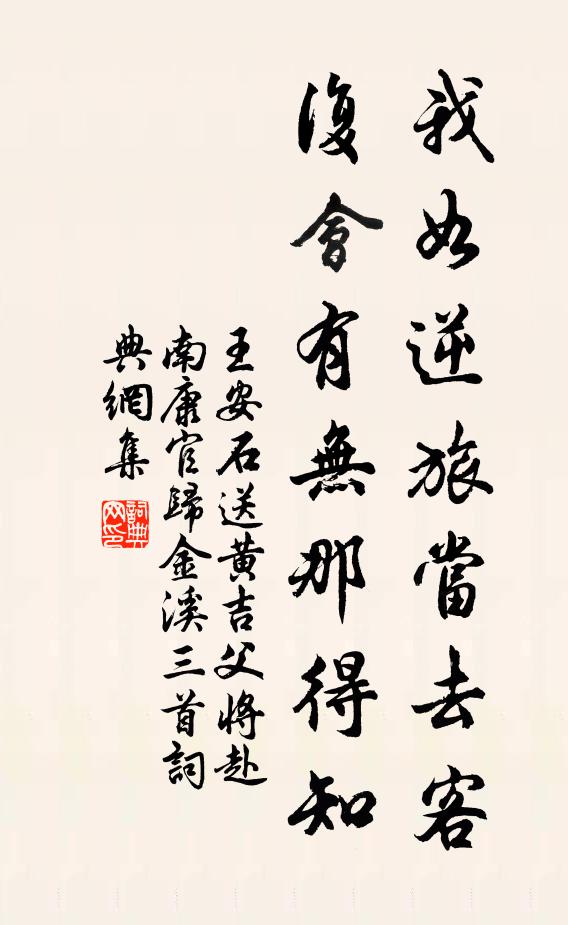 我如逆旅當去客
復會有無那得知
王安石送黄吉父將赴
南康官歸金溪三首詞
典網集
詞典网印